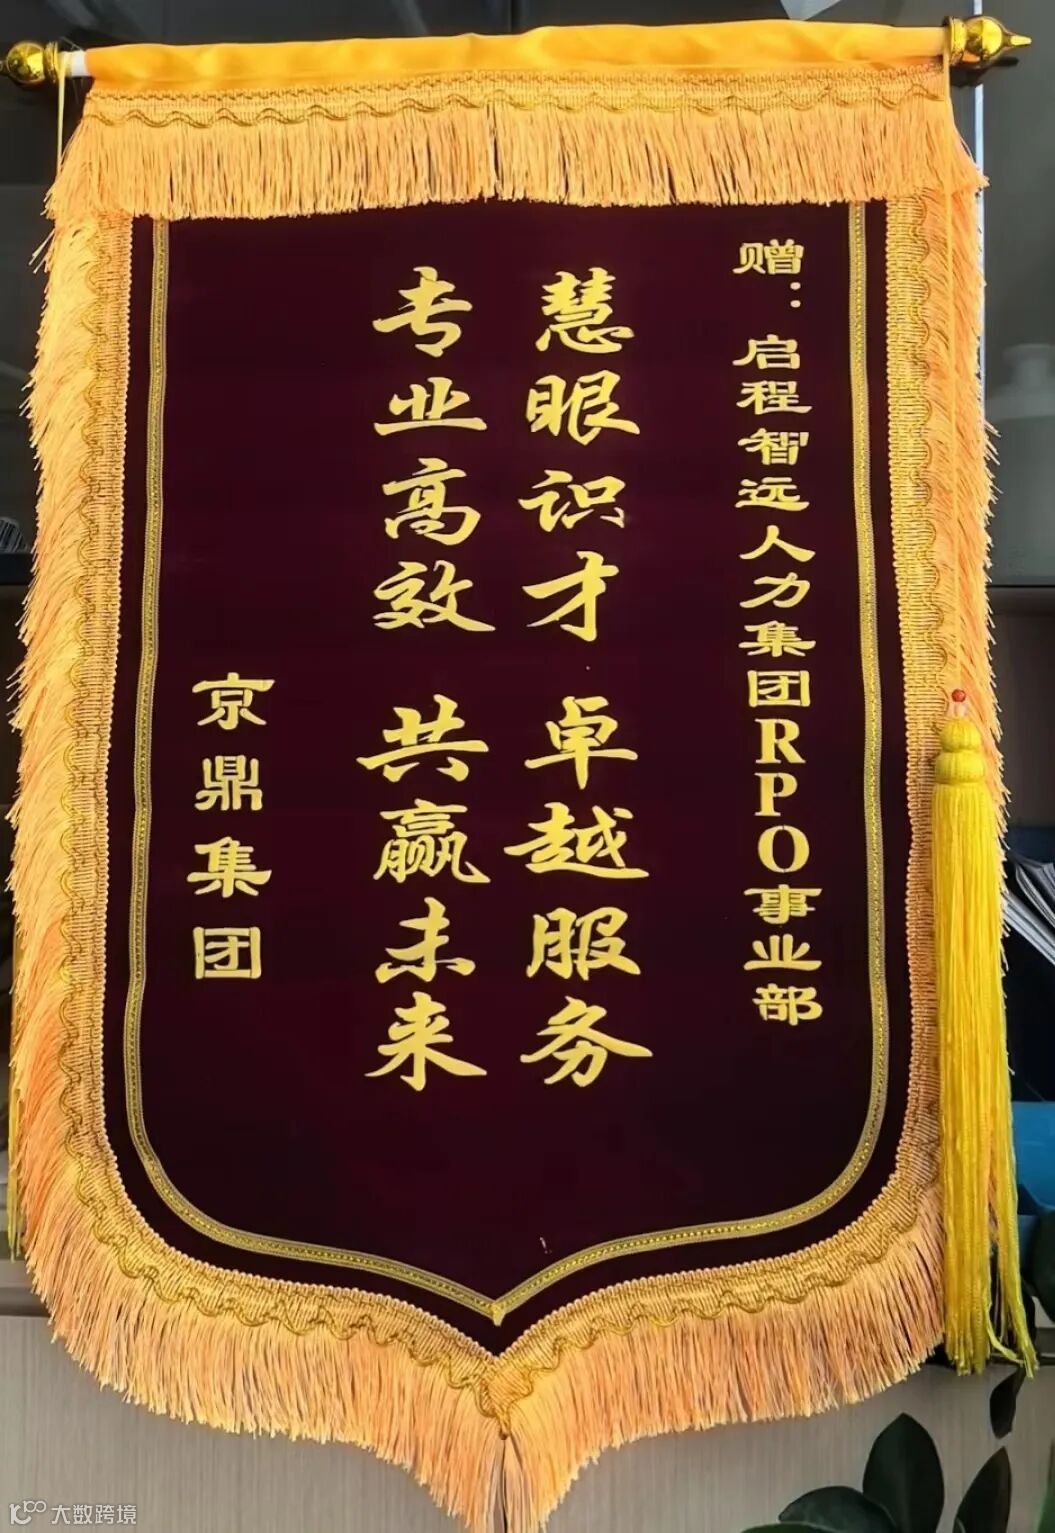 赠：启程智远人力集团RPO事业部
慧眼识才 卓越服务
专业高效 共赢未来
京鼎集团
大数跨境